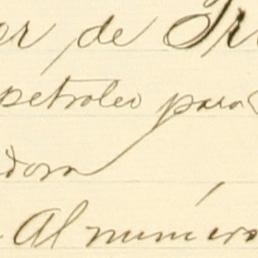 er de Tr
petroleo para
dora
Al número